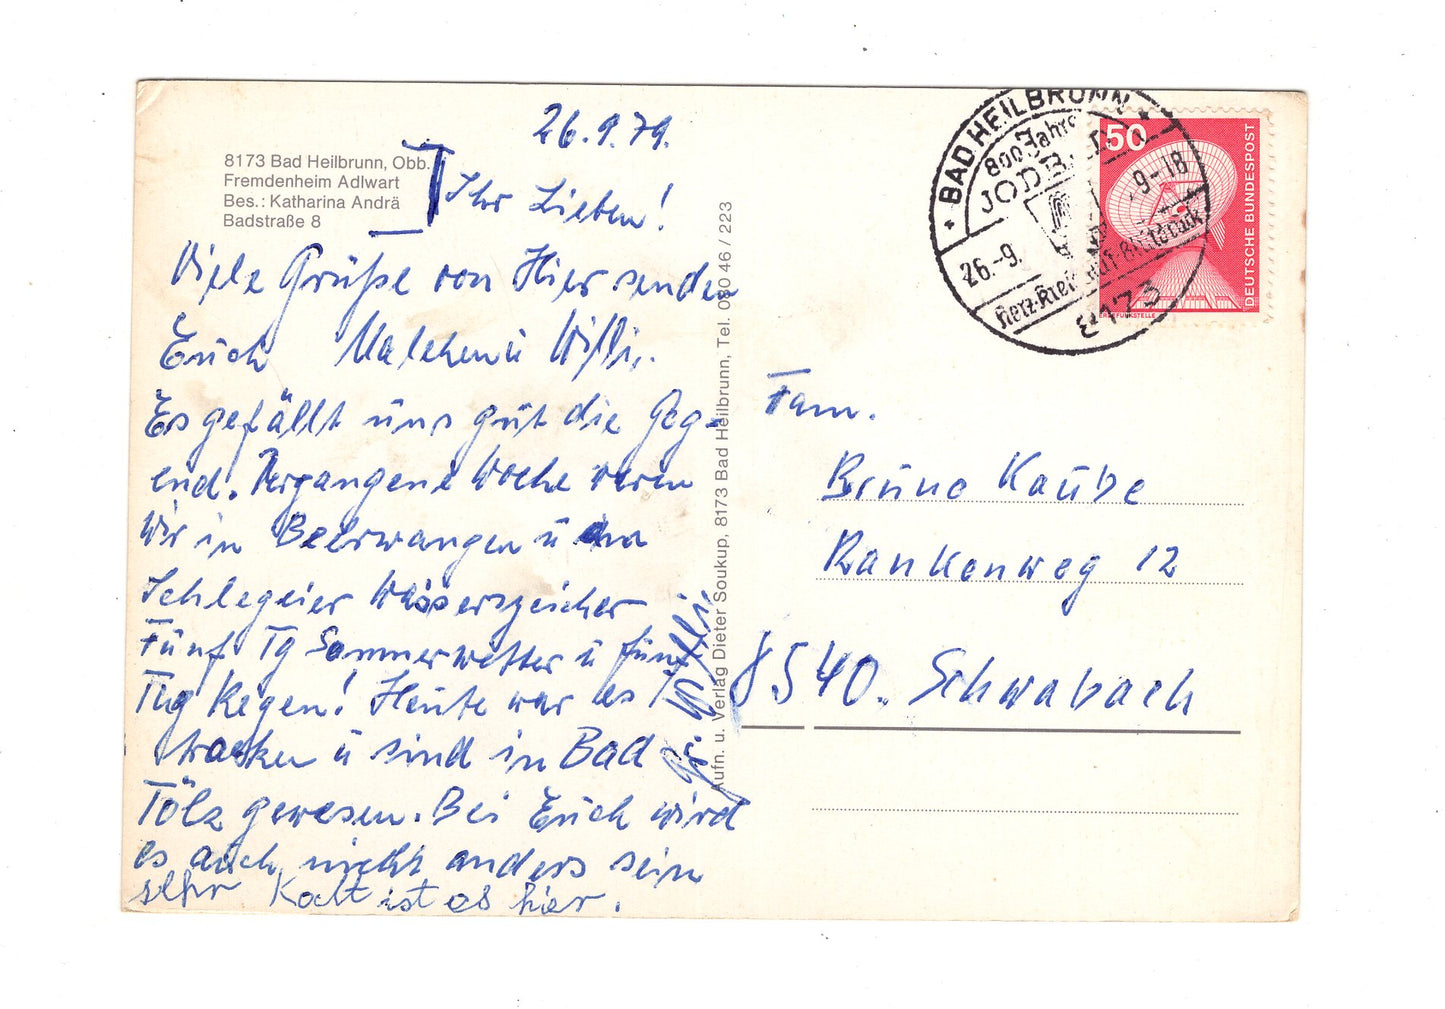 26.9.79.
8173 Bad Heilbrunn, Obb.
Fremdenheim Adlwart
Bes.: Katharina Andrä
Badstraße 8
Ihr Lieben!
Viele Grüße von Hier senden
Euch Malchen u Willi.
Es gefällt uns gut die Geg-
end. Vergangene Woche waren
Wir in Beerwangen u
Wasserspeicher
Fünf Tg Sommerwetter u fünf
Tag Regen! Heute war es
trocken u sind in Bad
Tölz gewesen. Bei Euch wird
es auch nicht anders sein
sehr Kalt ist es hier.
Gr. Willi
Aufn. u. Verlag Dieter Soukup, 8173 Bad Heilbrunn, Tel. 080 46 / 223
BAD HEILBRUNN
800 Jahre
JODBAD
26.-9.
9-18
8173
50
DEUTSCHE BUNDESPOST
ERDEFUNKSTELLE
Fam.
Bruno Kaube
Rankenweg 12
8540. Schwabach